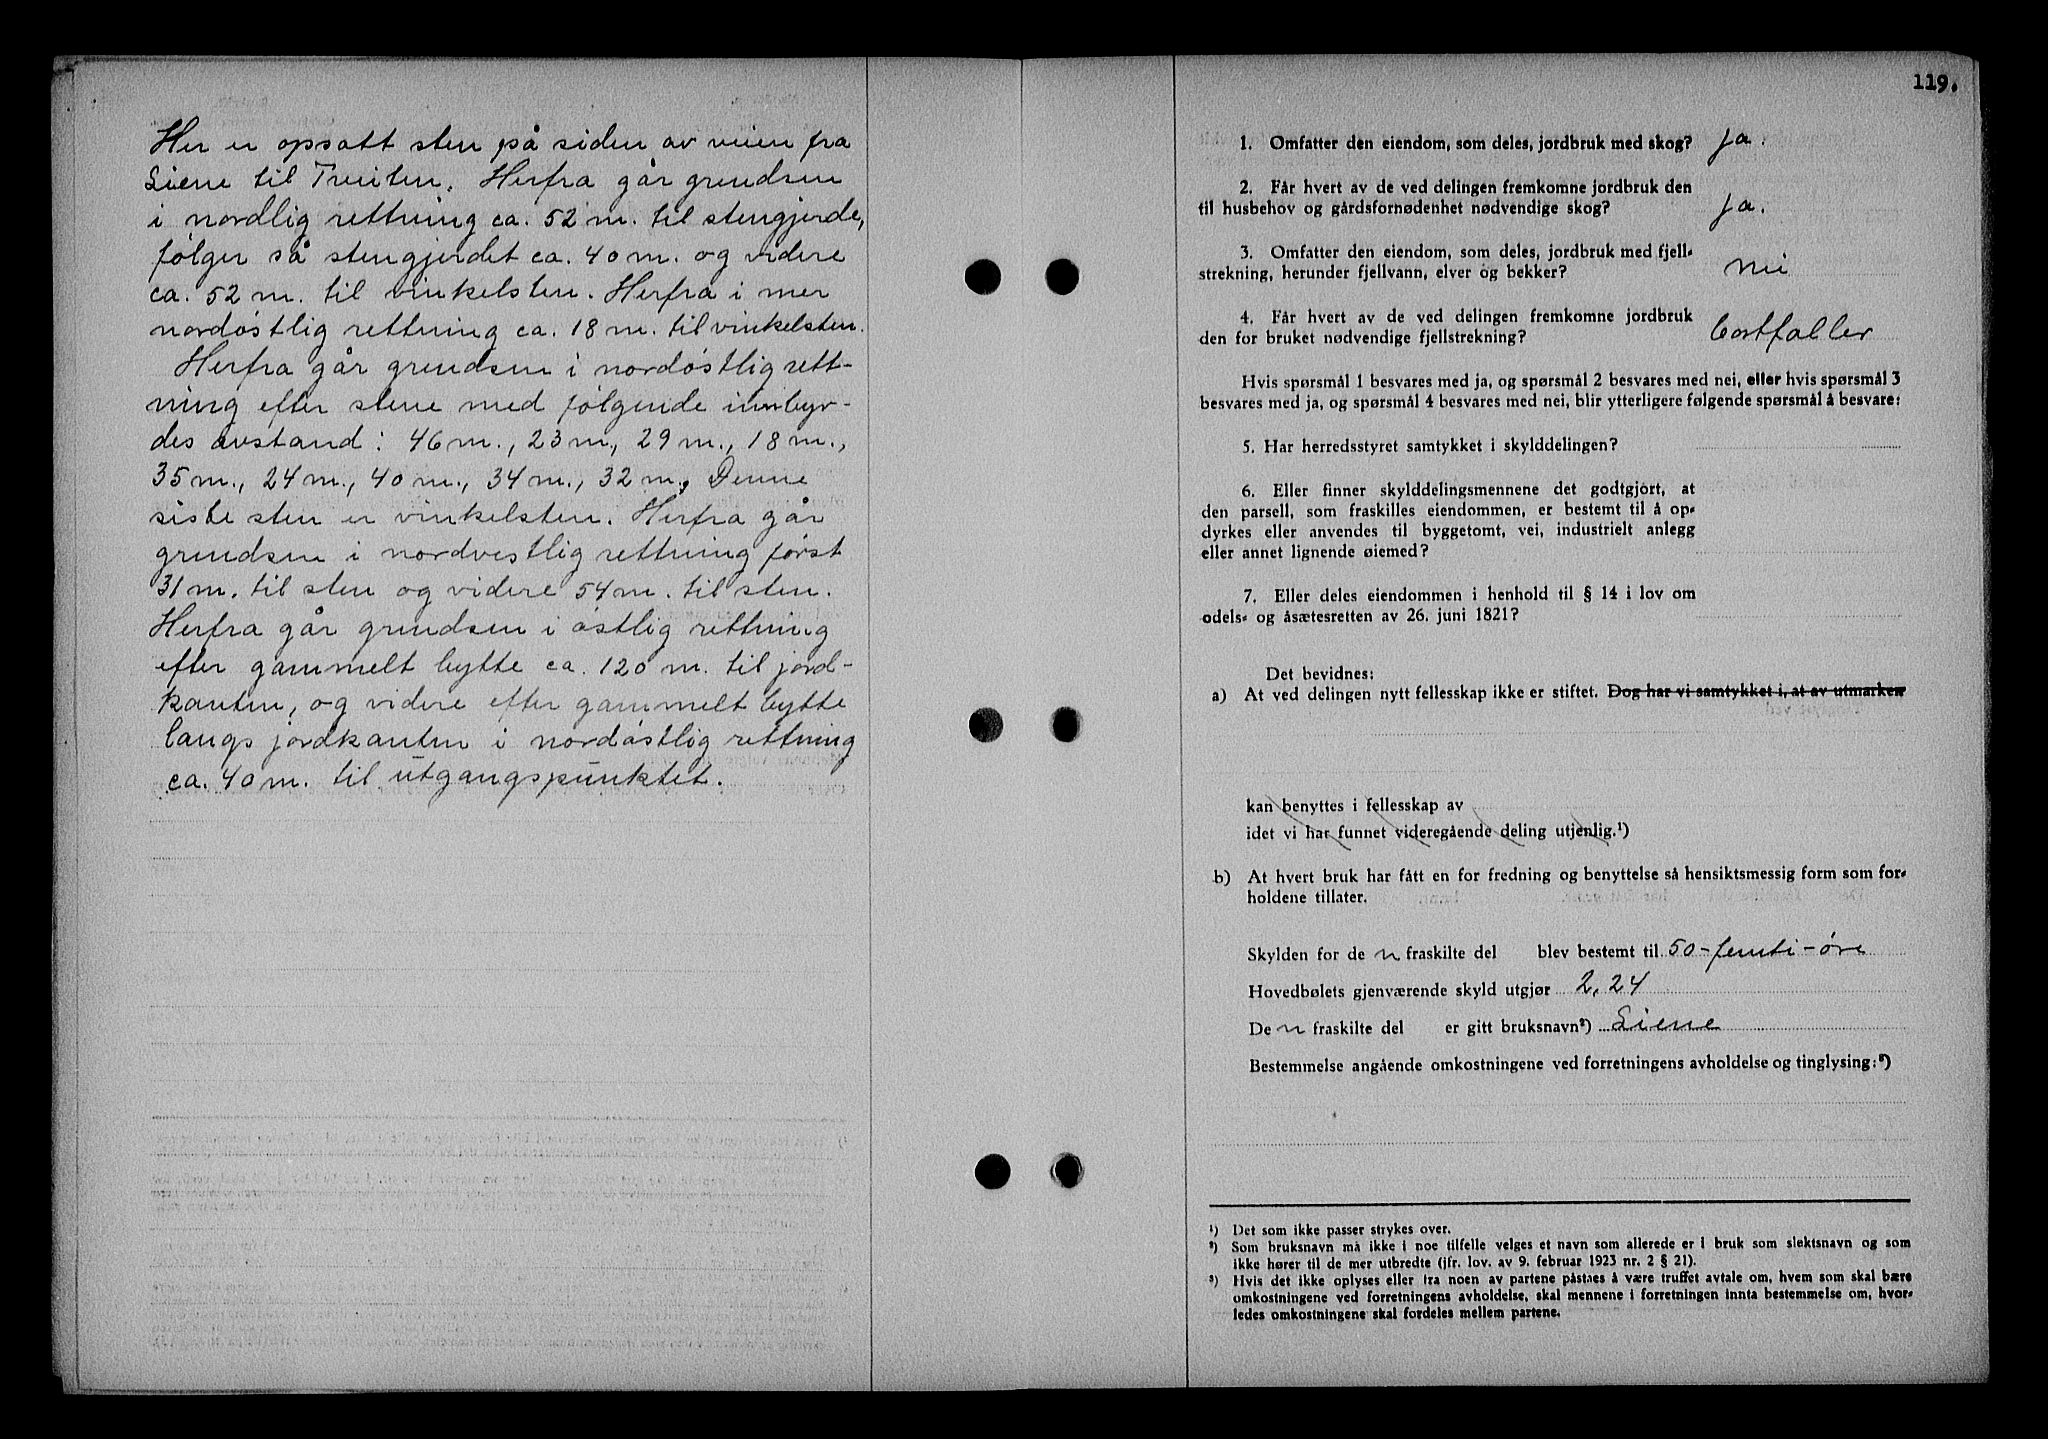 Her er opsatt sten på siden av veien fra
Liene til Treiten. Herfra går grendsen
i nordlig rettning ca. 52 m. til stengjerde,
følger så stengjerdet ca. 40 m. og videre
ca. 52 m. til vinkelsten. Herfra i mer
nordøstlig rettning ca. 18 m. til vinkelsten.
Herfra går grendsen i nordøstlig rett-
ning efter stene med følgende innbyr-
des avstand: 46 m., 23 m., 29 m., 18 m.,
35 m., 24 m., 40 m., 34 m., 32 m., Denne
siste sten er vinkelsten. Herfra går
grendsen i nordvestlig rettning først
31 m. til sten og videre 54 m. til sten.
Herfra går grendsen i østlig rettning
efter gammelt bytte ca. 120 m. til jord-
kanten, og videre efter gammelt bytte
langs jordkanten i nordøstlig rettning
ca. 40 m. til utgangspunktet.
119.
1. Omfatter den eiendom, som deles, jordbruk med skog? ja.
2. Får hvert av de ved delingen fremkomne jordbruk den
til husbehov og gårdsfornødenhet nødvendige skog? ja.
3. Omfatter den eiendom, som deles, jordbruk med fjell-
strekning, herunder fjellvann, elver og bekker? nei
4. Får hvert av de ved delingen fremkomne jordbruk
den for bruket nødvendige fjellstrekning? bortfaller
Hvis spørsmål 1 besvares med ja, og spørsmål 2 besvares med nei, eller hvis spørsmål 3
besvares med ja, og spørsmål 4 besvares med nei, blir ytterligere følgende spørsmål å besvare:
5. Har herredsstyret samtykket i skylddelingen?
6. Eller finner skylddelingsmennene det godtgjort, at
den parsell, som fraskilles eiendommen, er bestemt til å op-
dyrkes eller anvendes til byggetomt, vei, industrielt anlegg
eller annet lignende øiemed?
7. Eller deles eiendommen i henhold til § 14 i lov om
odels- og åsætesretten av 26. juni 1821?
Det bevidnes:
a) At ved delingen nytt fellesskap ikke er stiftet. Dog har vi samtykket i, at av utmarken
kan benyttes i fellesskap av
idet vi har funnet videregående deling utjenlig.¹)
b) At hvert bruk har fått en for fredning og benyttelse så hensiktsmessig form som for-
holdene tillater.
Skylden for de n fraskilte del blev bestemt til 50-femti-øre
Hovedbølets gjenværende skyld utgjør 2,24
De n fraskilte del er gitt bruksnavn²) Liene
Bestemmelse angående omkostningene ved forretningens avholdelse og tinglysing:³)
¹) Det som ikke passer strykes over.
²) Som bruksnavn må ikke i noe tilfelle velges et navn som allerede er i bruk som slektsnavn og som
ikke hører til de mer utbredte (jfr. lov. av 9. februar 1923 nr. 2 § 21).
³) Hvis det ikke oplyses eller fra noen av partene påstaes å være truffet avtale om, hvem som skal bære
omkostningene ved forretningens avholdelse, skal mennene i forretningen innta bestemmelse om, hvor-
ledes omkostningene skal fordeles mellem partene.